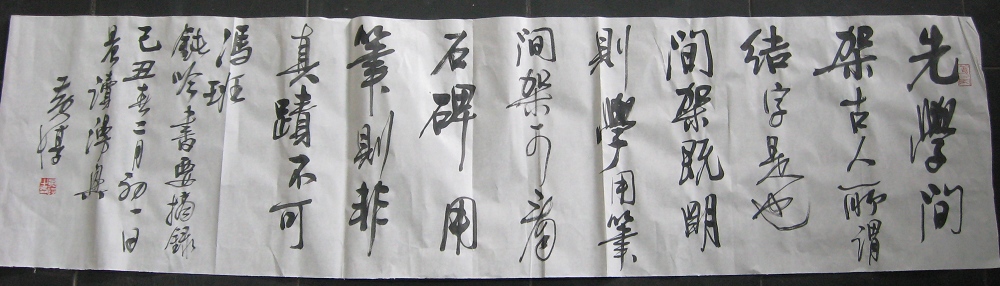 先學間
架古人所謂
結字是也
間架既明
則學用筆
間架可看
石碑用
筆則非
真蹟不可
馮班
鈍吟書要摘錄
己丑春二月初一日
晨讀漫興
黃惇